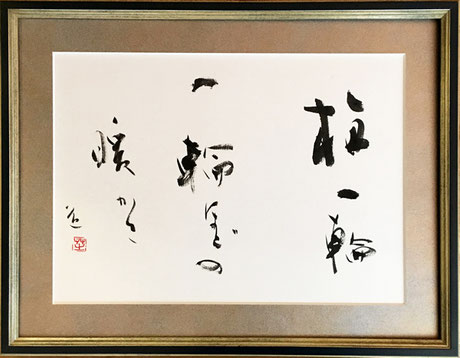 梅一輪
一輪ほどの
暖かさ